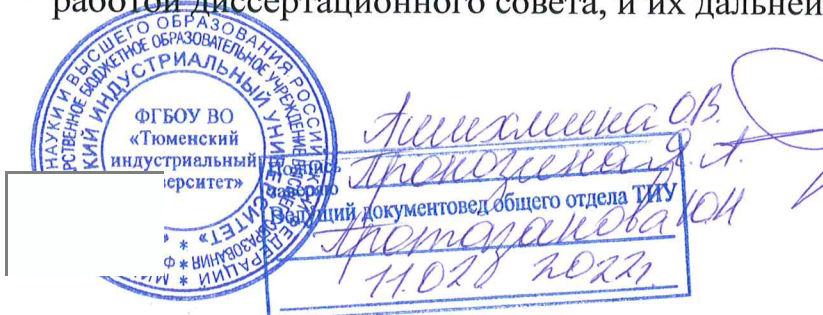 работой диссертационного совета, и их дальней
НАУКИ И ВЫСШЕГО ОБРАЗОВАНИЯ РОССИЙСКОЙ ФЕДЕРАЦИИ
БЮДЖЕТНОЕ ОБРАЗОВАТЕЛЬНОЕ УЧРЕЖДЕНИЕ
ИНДУСТРИАЛЬНЫЙ
ФГБОУ ВО
«Тюменский
индустриальный
верситет»
Ашихмина ОВ.
Подпись Пронозина Я. А.
заверяю
Ведущий документовед общего отдела ТИУ
Протозанова ЮН
11.02 2022г.